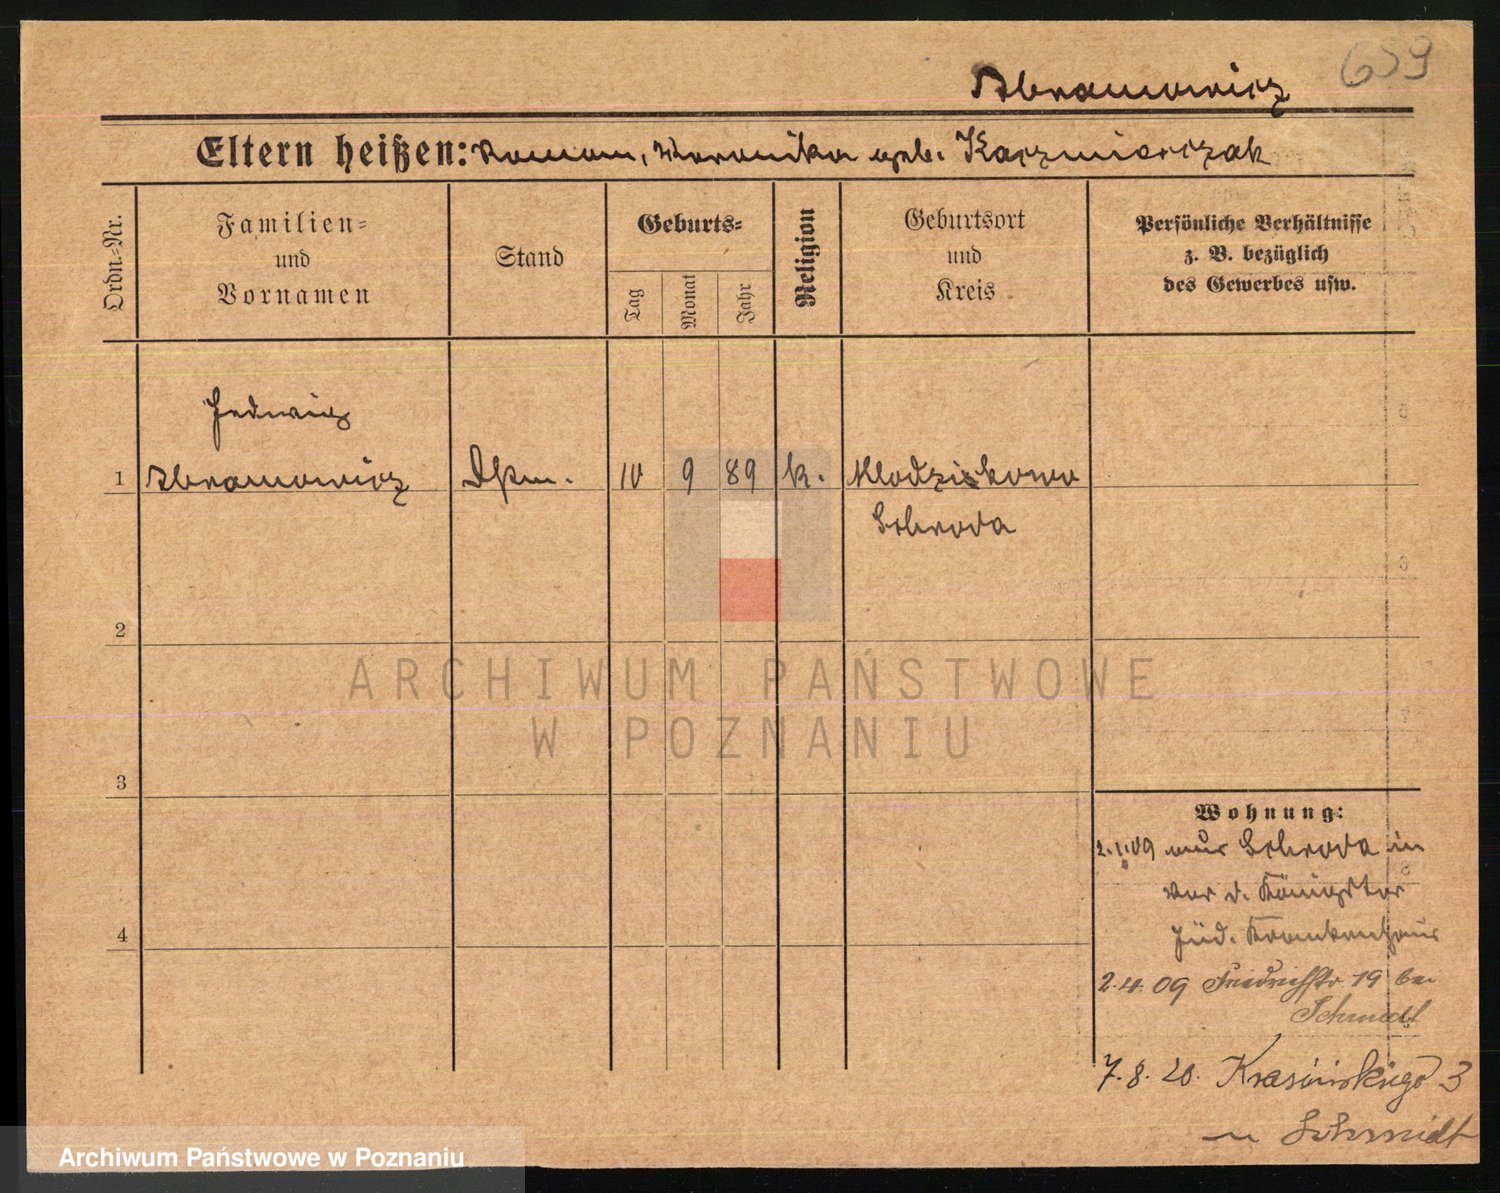 659
Abramowicz
Eltern heißen: Roman, Weronika geb. Kaczmierczak
Ordn.-Nr.
Familien-
und
Vornamen
Stand
Geburts-
Tag
Monat
Jahr
Religion
Geburtsort
und
Kreis
Persönliche Verhältnisse
z. B. bezüglich
des Gewerbes usw.
Hedwig
1 Abramowicz Dstm. 10 9 89 k. Mlodzikowo
Schroda
2
3
4
Wohnung:
2.1.09 aus Schroda in
vor d. Königstor
Jüd. Krankenhaus
2.4.09 Friedrichstr. 19 bei
Schmidt
7.8.20. Krasińskiego 3
u Schmidt
ARCHIWUM PAŃSTWOWE
W POZNANIU
Archiwum Państwowe w Poznaniu